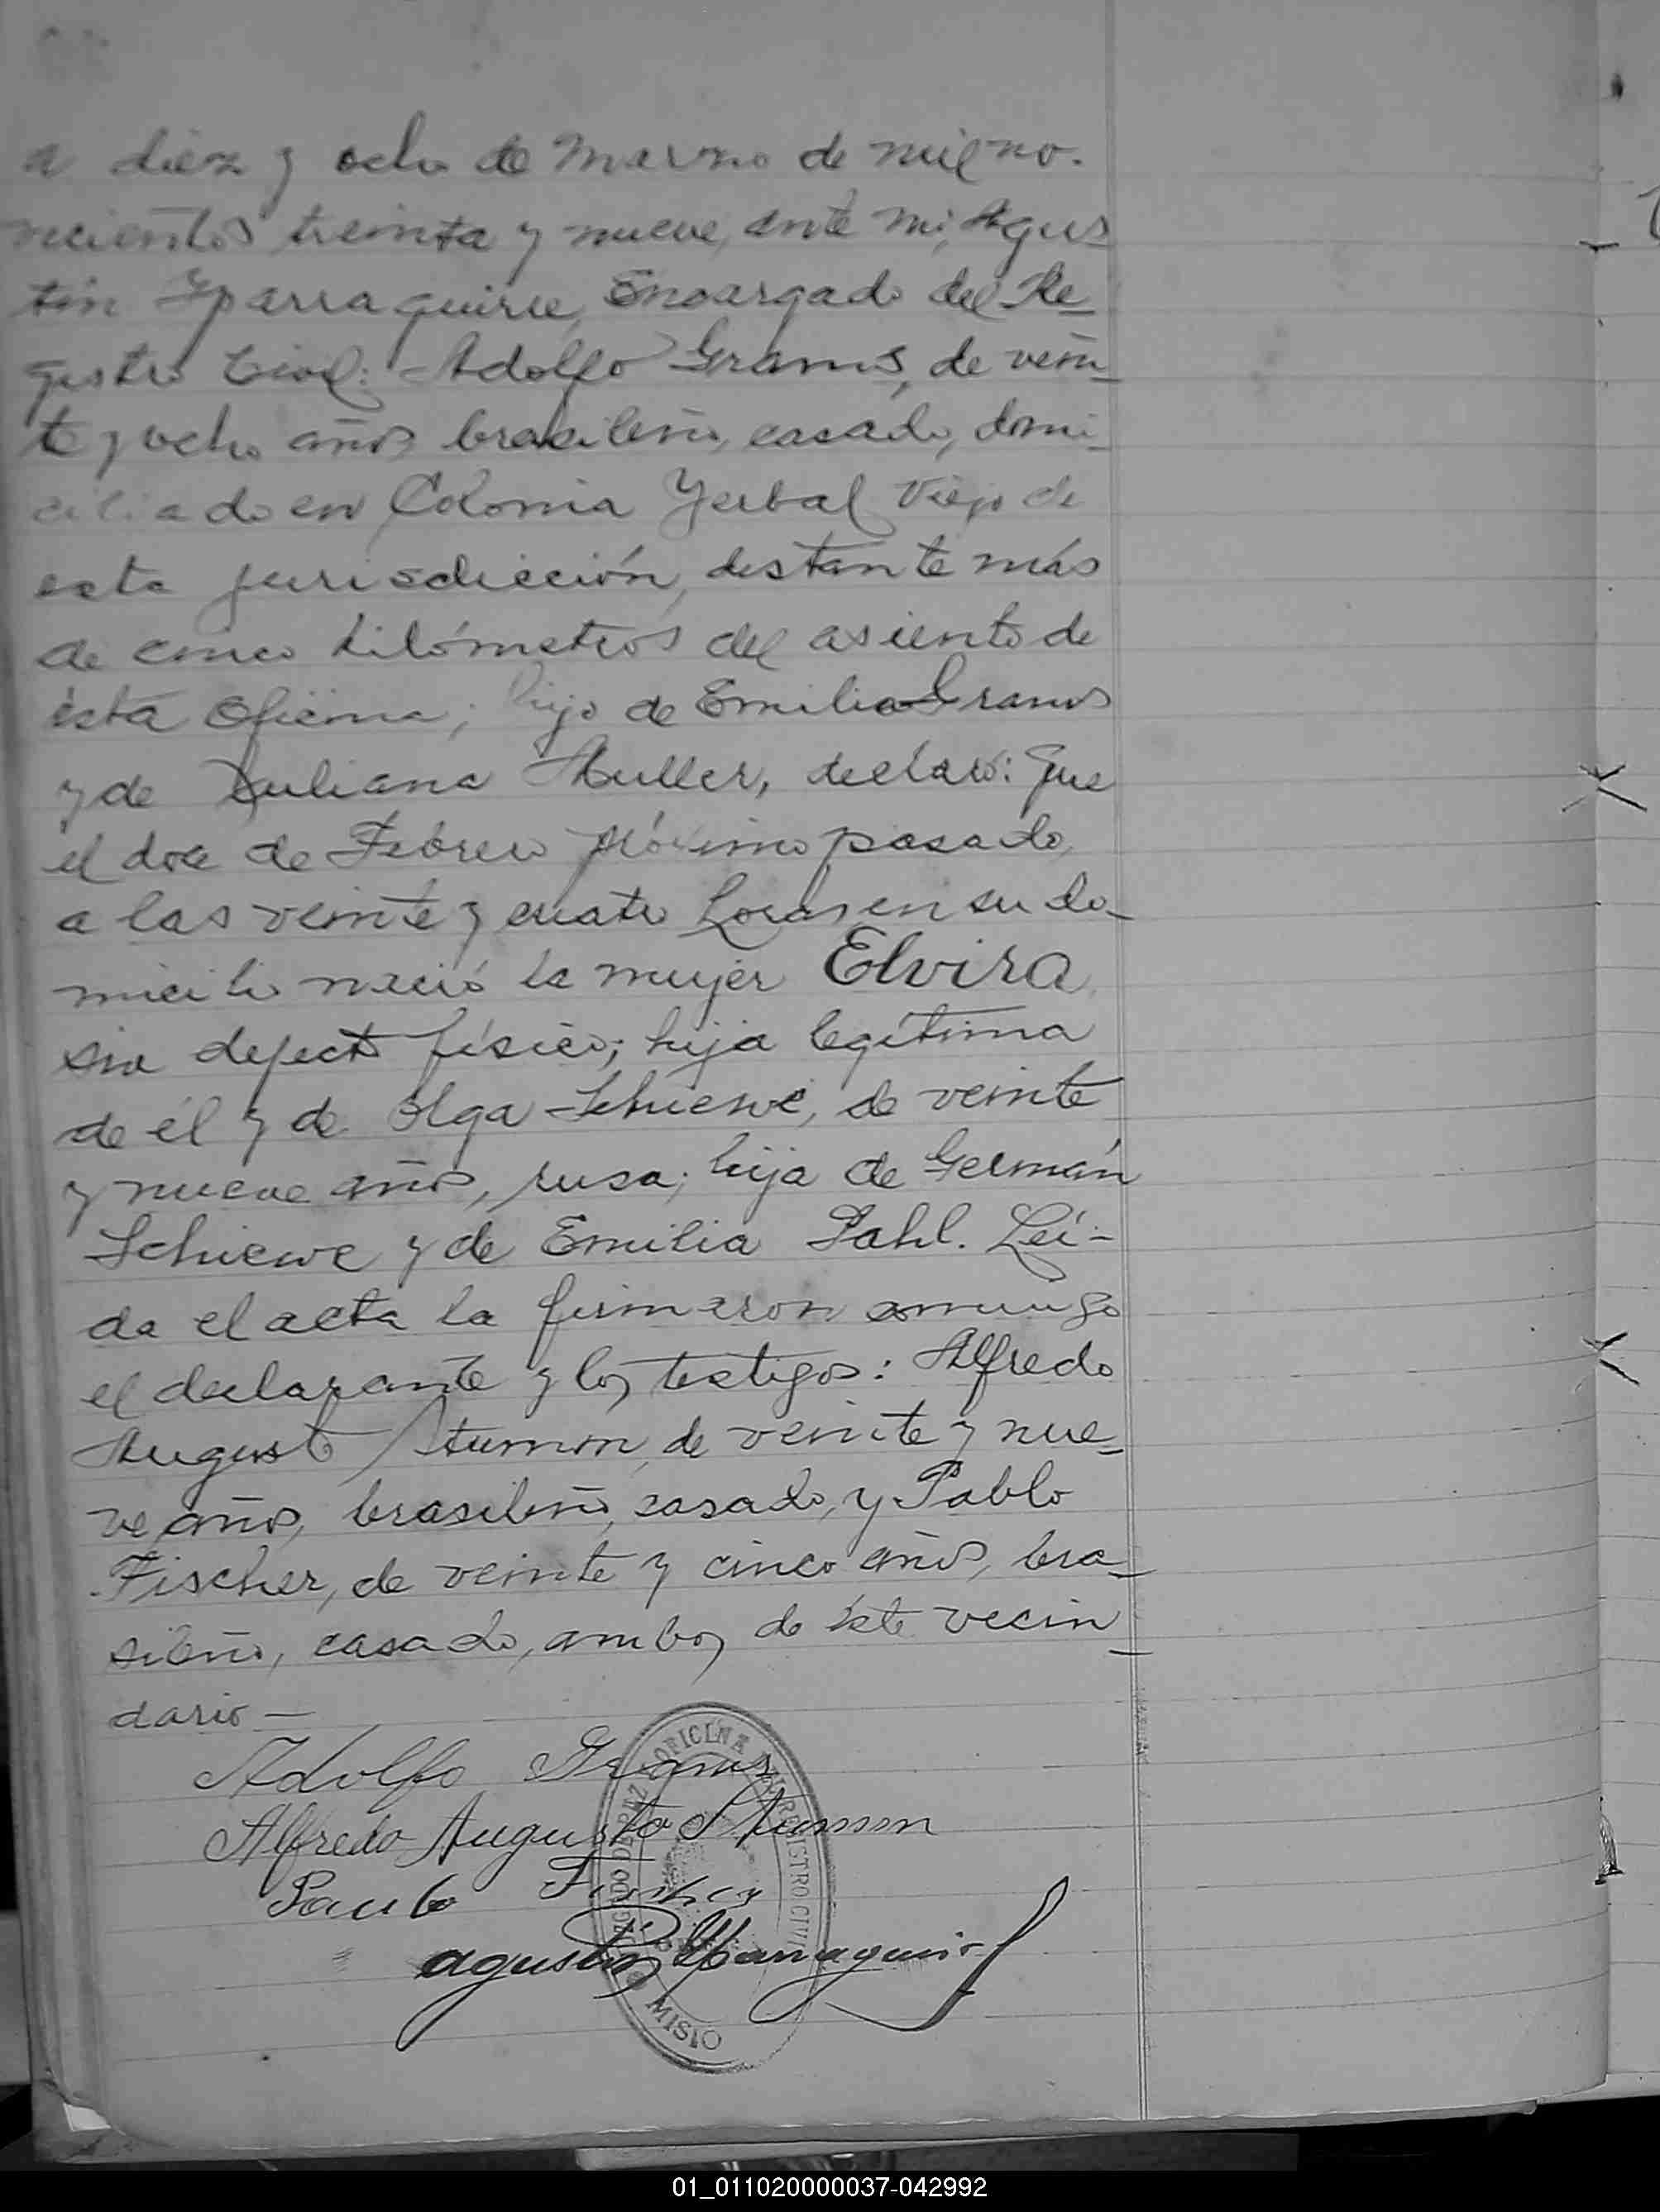 a diez y ocho de Marzo de mil no-
vecientos treinta y nueve, ante mi, Agus
tín Yparraguirre, Encargado del Re-
gistro Civil: Adolfo Grams, de vein-
te y ocho años, brasileño, casado, domi-
ciliado en Colonia Yerbal Viejo de
esta jurisdicción, distante más
de cinco kilómetros del asiento de
ésta Oficina; hijo de Emilio Grams
y de Juliana Muller, declaró: Que
el doce de Febrero próximo pasado,
a las veinte y cuatro horas en su do-
micilio nació la mujer Elvira
sin defecto físico; hija legítima
de él y de Olga Schiewe, de veinte
y nueve años, rusa; hija de Germán
Schiewe y de Emilia Pahl. Leí-
da el acta la firmaron conmigo
el declarante y los testigos: Alfredo
Augusto Stumm, de veinte y nue-
ve años, brasileño, casado, y Pablo
Fischer, de veinte y cinco años, bra-
sileño, casado, ambos de éste vecin-
dario—
Adolfo Grams
Alfredo Augusto Stumm
Paulo Fischer
Agustín Yparraguirre
OFICINA REGISTRO CIVIL
JUZGADO DE PAZ
MISIO
01_011020000037-042992